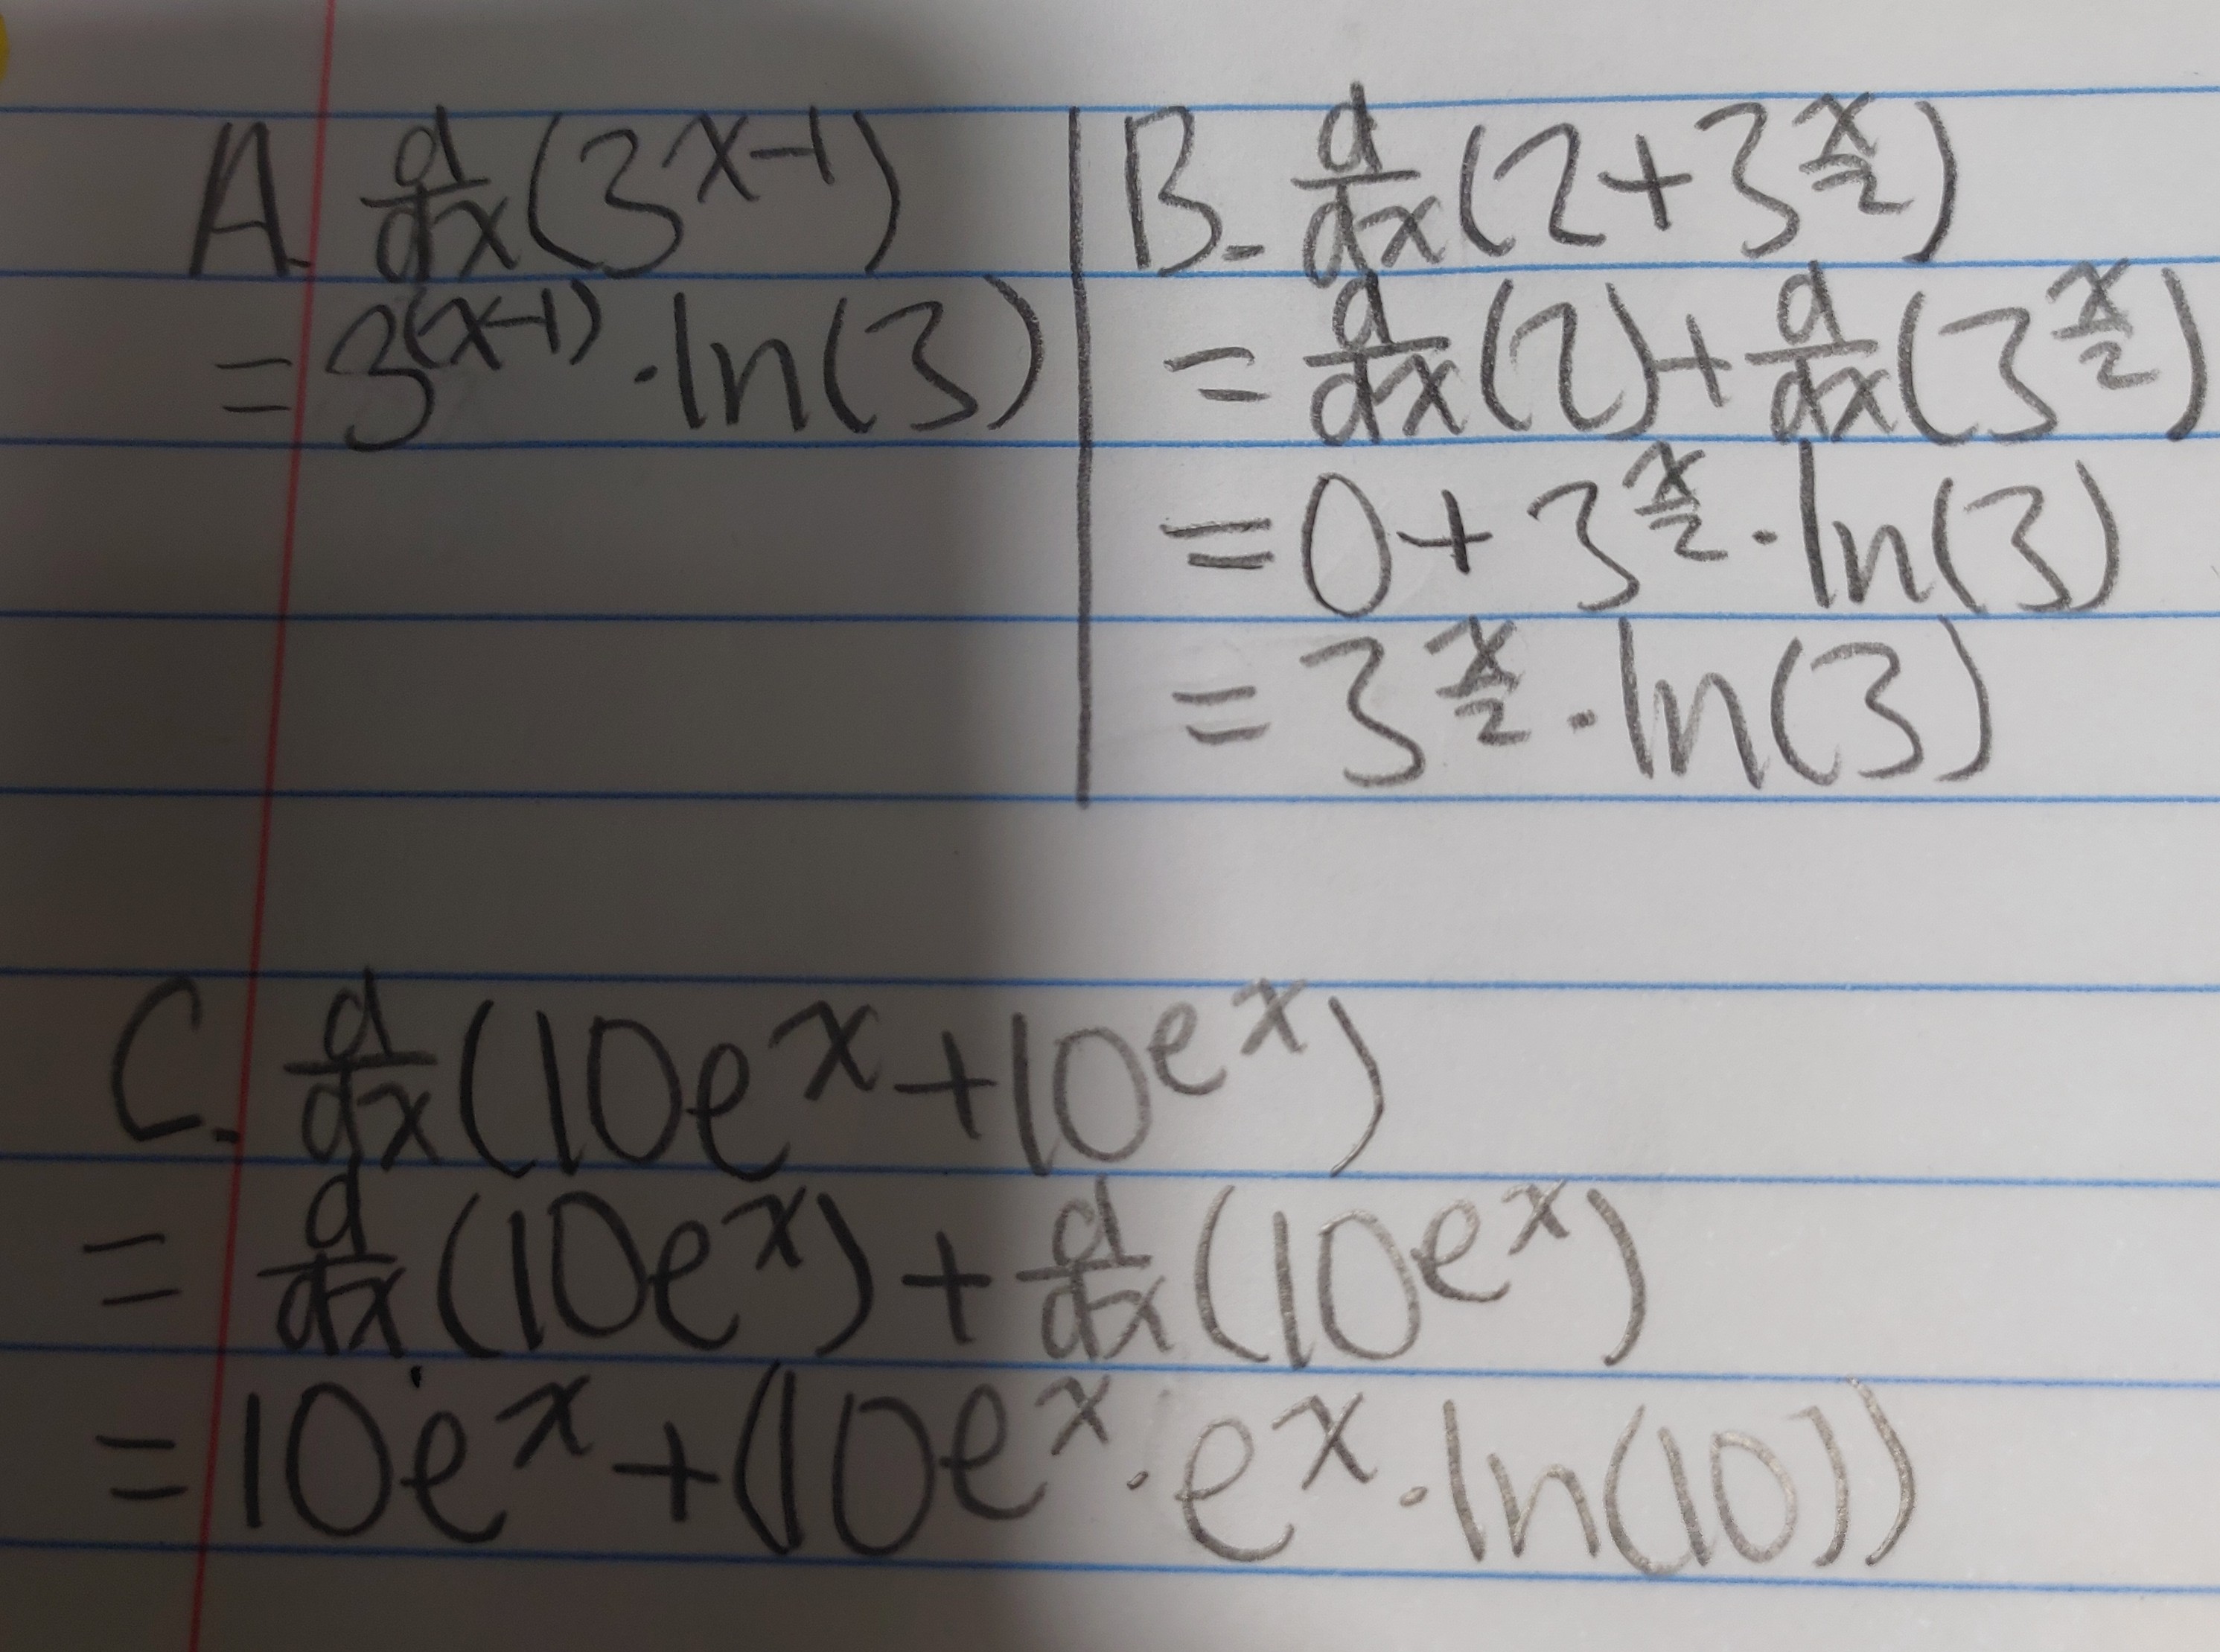 A. d/dx(3^(x-1))
= 3^(x-1) · ln(3)
B. d/dx(2+3^(x/2))
= d/dx(2) + d/dx(3^(x/2))
= 0 + 3^(x/2) · ln(3)
= 3^(x/2) · ln(3)
C. d/dx(10e^x + 10^(e^x))
= d/dx(10e^x) + d/dx(10^(e^x))
= 10e^x + (10e^x · e^x · ln(10))